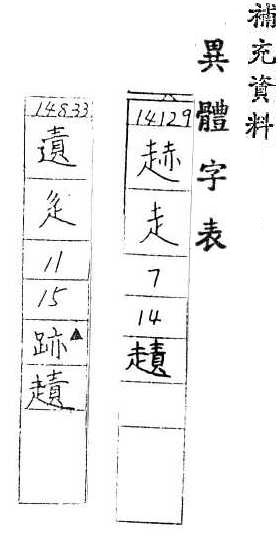 補充資料
異體字表
14129
走
7
14
14833
辵
11
15
跡▲